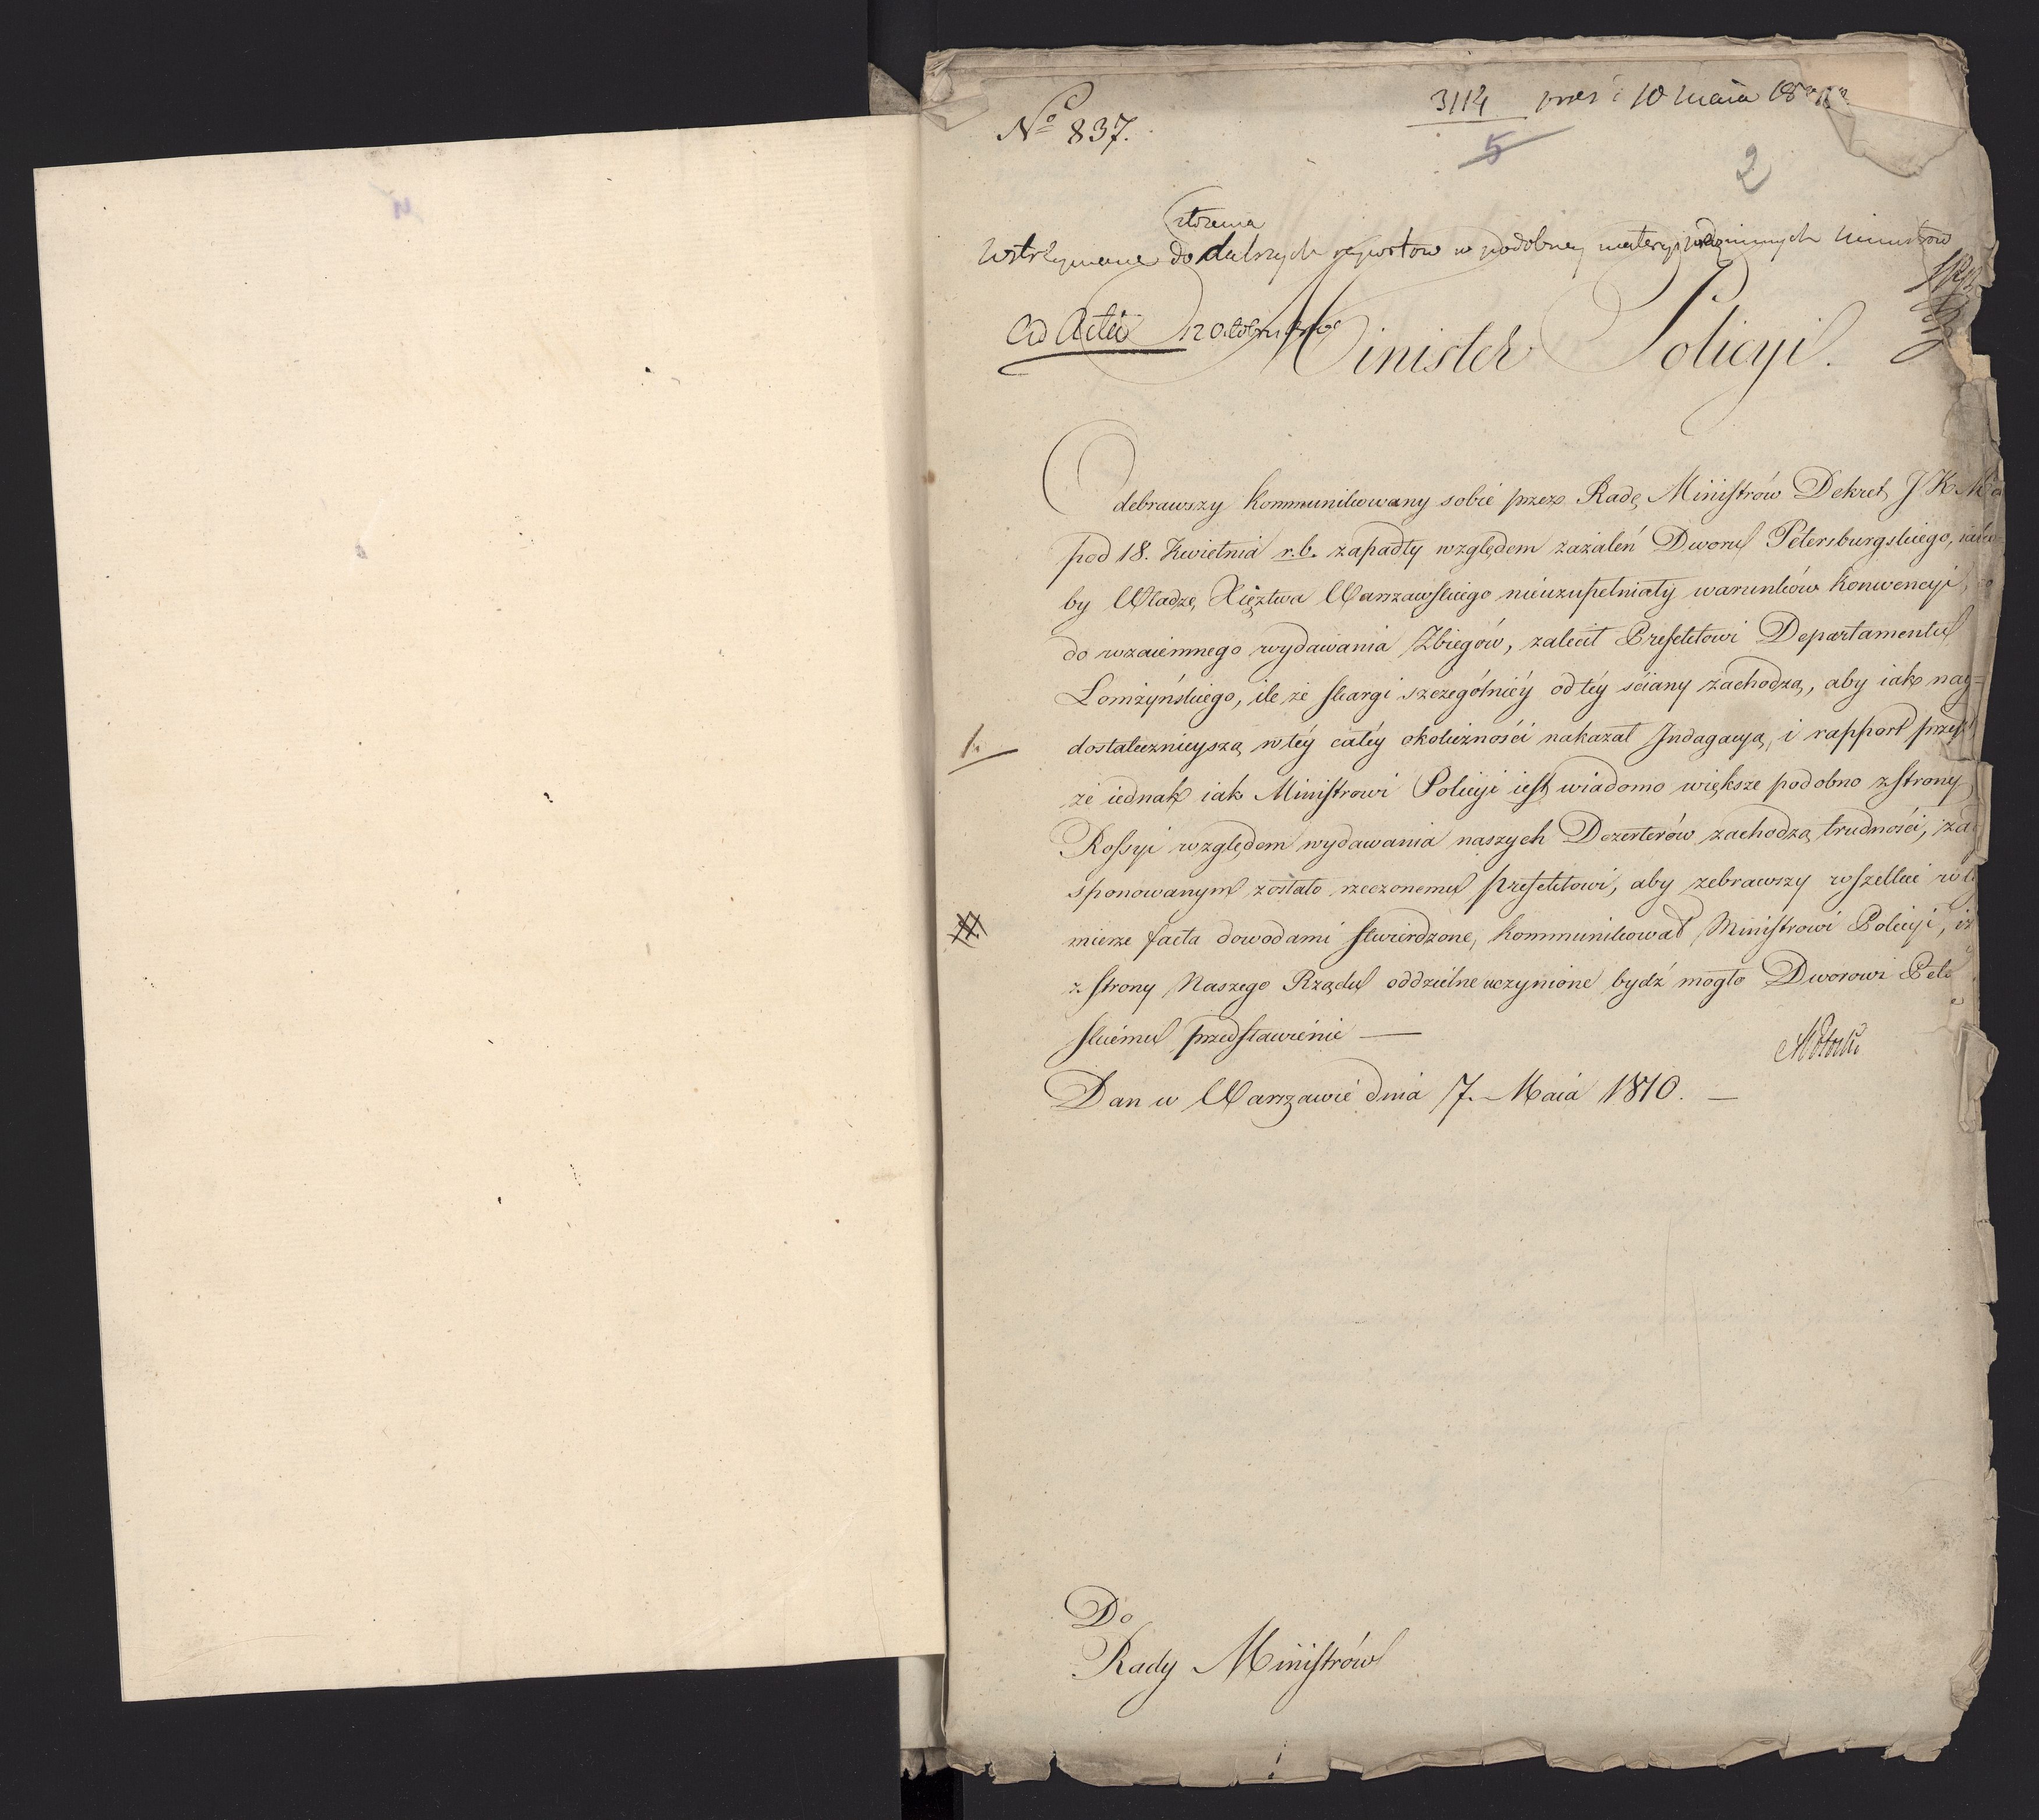 3114 10 maia
Nº 837.
5
2
złożenia
Wstrzymane do dalszych raportów w podobney materyi Ministrów
ad Acta
Minister Policyi.
Odebrawszy kommunikowany sobie przez Radę Ministrów Dekret J K M
pod 18. Kwietnia r. b. zapadły względem zażaleń Dworu Petersburgskiego, iako-
by Władze Xięztwa Warszawskiego nieuzupełniały warunków konwencyi, co
do wzaiemnego wydawania Zbiegów, zalecił Prefektowi Departamentu
Łomżyńskiego, ile że skargi szczególniéy od téy ściany zachodzą, aby iak nay=
1. dostatecznieyszą w téy całéy okoliczności nakazał Indagacyą, i rapport
że iednak iak Ministrowi Policyi iest wiadomo większe podobno z strony
Rossyi względem wydawania naszych Dezerterów zachodzą trudności,
sponowanym zostało rzeczonemu Prefektowi, aby zebrawszy wszelkie w
mierze facta dowodami stwierdzone, kommunikował Ministrowi Policyi, iż
z strony Naszego Rządu oddzielne uczynione bydź mogło Dworowi Pete
skiemu przedstawienie —
Dan w Warszawie dnia 7. Maia 1810. —
Do
Rady Ministrów